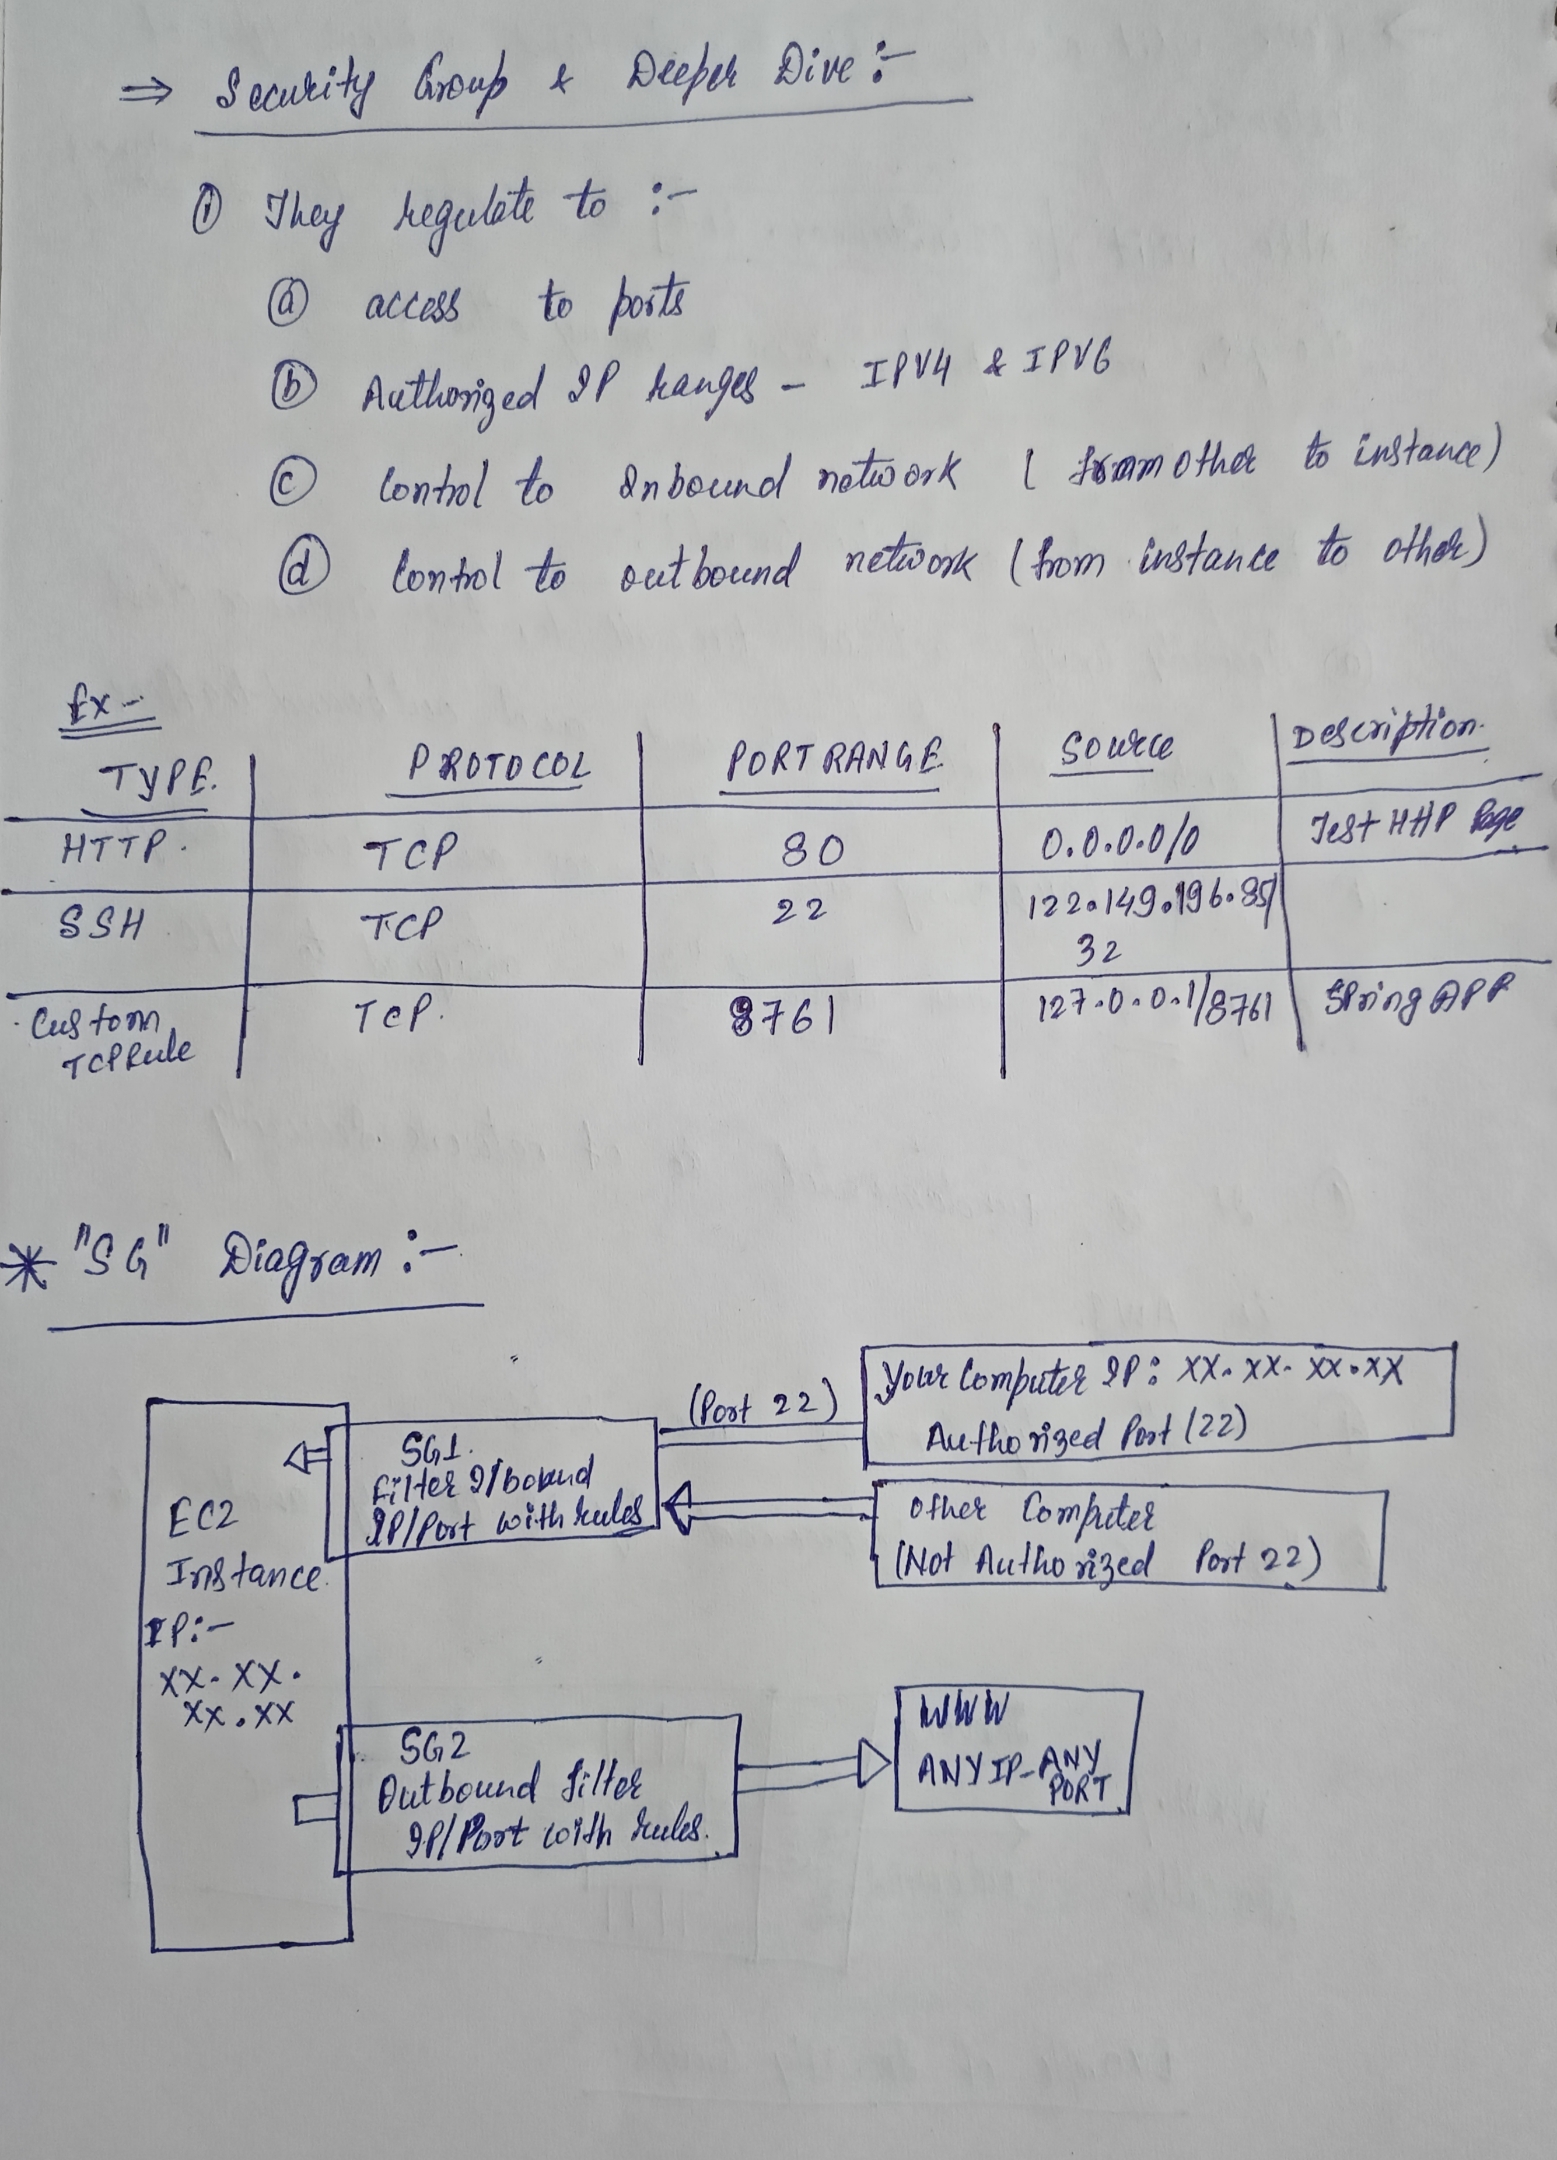 ⇒ Security Group & Deeper Dive :-
① They regulate to :-
ⓐ access to ports
ⓑ Authorized IP ranges - IPV4 & IPV6
ⓒ Control to Inbound network ( from other to instance)
ⓓ Control to outbound network (from instance to other)
Ex -
TYPE. PROTOCOL PORT RANGE Source Description.
HTTP. TCP 80 0.0.0.0/0 Test HTTP Page
SSH TCP 22 122.149.196.85/
32
Custom TCP. 8761 127.0.0.1/8761 Spring APP
TCP Rule
* "SG" Diagram :-
(Port 22)
Your Computer IP: XX. XX. XX.XX
Authorized Port (22)
SG1.
Filter I/bound
IP/Port with rules
Other Computer
(Not Authorized Port 22)
EC2
Instance.
IP:-
XX. XX.
XX.XX
SG2
Outbound filter
IP/Port with rules.
WWW
ANY IP-ANY
PORT